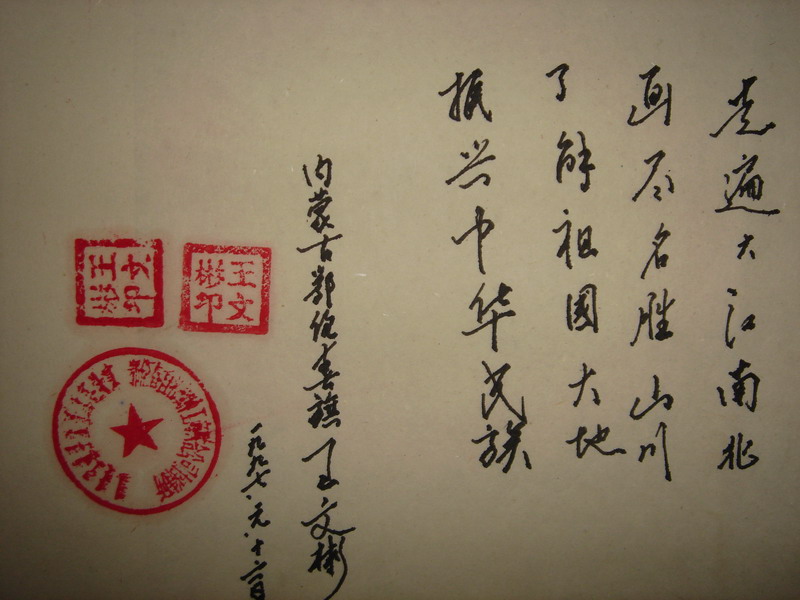 走遍大江南北
画尽名胜山川
了解祖国大地
振兴中华民族
内蒙古鄂伦春旗 王文彬
一九九七.元.十六日
王文彬印
王文彬印